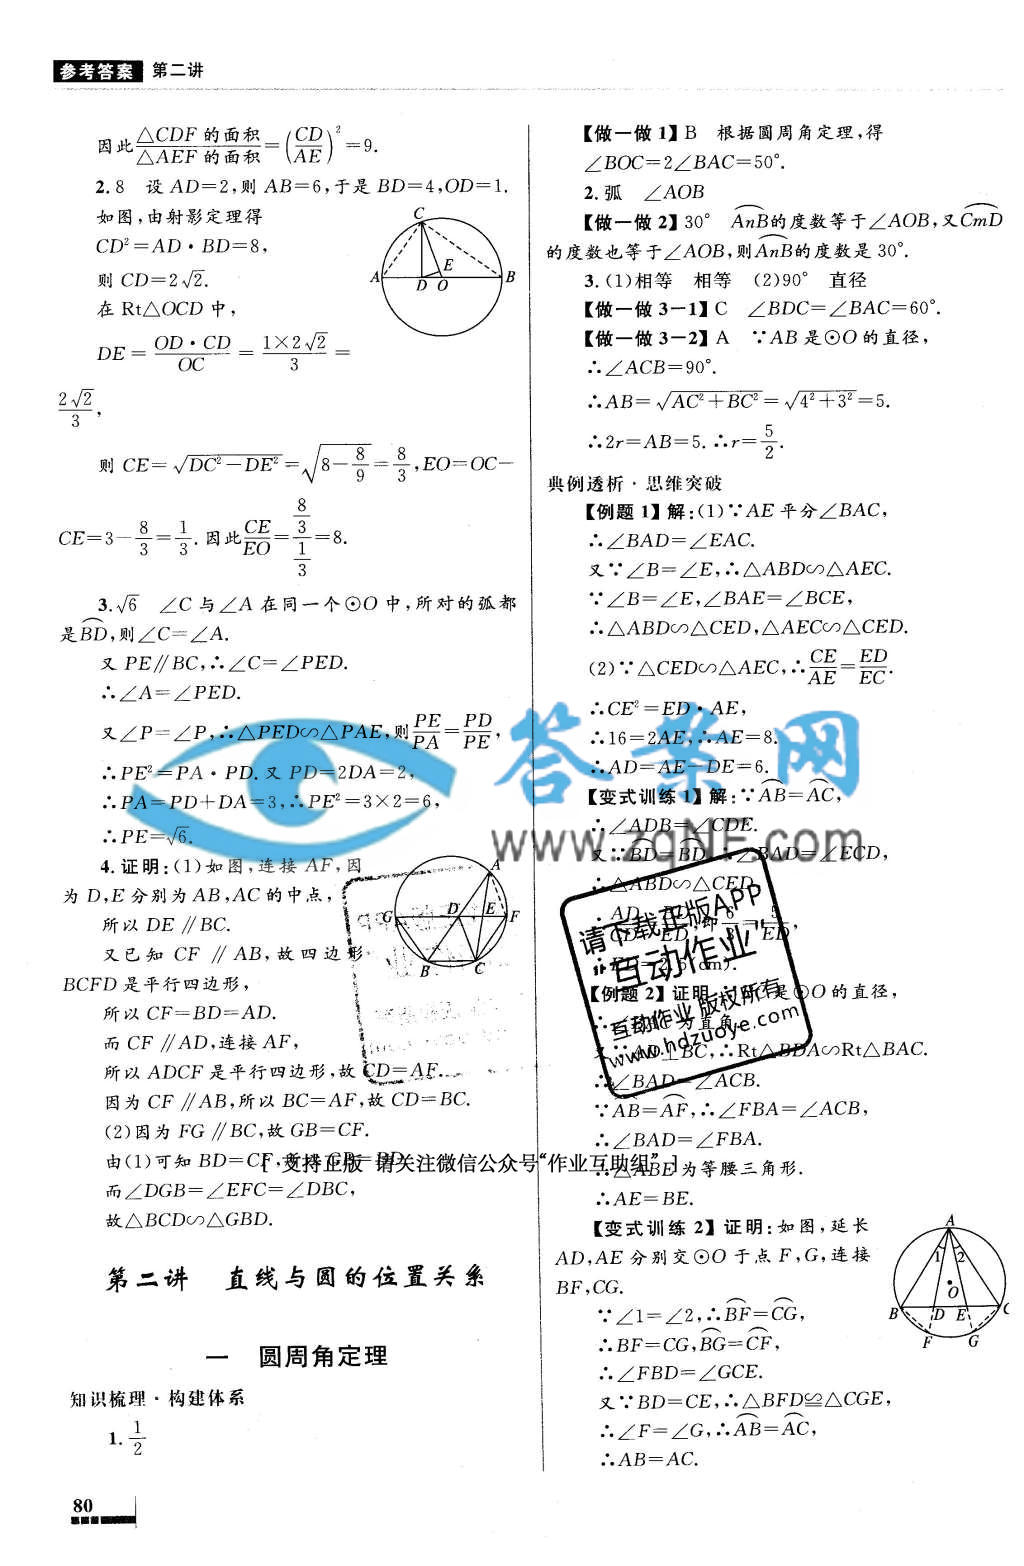 参考答案 第二讲
因此△CDF 的面积/△AEF 的面积=(CD/AE)²=9.
2.8 设 AD=2,则 AB=6,于是 BD=4,OD=1.
如图,由射影定理得
CD²=AD·BD=8,
则 CD=2√2.
在 Rt△OCD 中,
DE=OD·CD/OC=1×2√2/3=
2√2/3,
则 CE=√(DC²-DE²)=√(8-8/9)=8/3,EO=OC-
CE=3-8/3=1/3.因此CE/EO=(8/3)/(1/3)=8.
C
E
A
D O
B
3.√6 ∠C 与∠A 在同一个⊙O 中,所对的弧都
是BD,则∠C=∠A.
又 PE∥BC,∴∠C=∠PED.
∴∠A=∠PED.
又∠P=∠P,∴△PED∽△PAE,则PE/PA=PD/PE,
∴PE²=PA·PD.又 PD=2DA=2,
∴PA=PD+DA=3,∴PE²=3×2=6,
∴PE=√6.
4.证明:(1)如图,连接 AF,因
为 D,E 分别为 AB,AC 的中点,
所以 DE∥BC.
又已知 CF∥AB,故四边形
BCFD 是平行四边形,
所以 CF=BD=AD.
而 CF∥AD,连接 AF,
所以 ADCF 是平行四边形,故 CD=AF.
因为 CF∥AB,所以 BC=AF,故 CD=BC.
(2)因为 FG∥BC,故 GB=CF.
由(1)可知 BD=CF,所以 GB=BD.
而∠DGB=∠EFC=∠DBC,
故△BCD∽△GBD.
A
G
D
E
F
B
C
第二讲 直线与圆的位置关系
一 圆周角定理
知识梳理·构建体系
1.1/2
【做一做 1】B 根据圆周角定理,得
∠BOC=2∠BAC=50°.
2.弧 ∠AOB
【做一做 2】30° AnB的度数等于∠AOB,又CmD
的度数也等于∠AOB,则AnB的度数是 30°.
3.(1)相等 相等 (2)90° 直径
【做一做 3-1】C ∠BDC=∠BAC=60°.
【做一做 3-2】A ∵AB 是⊙O 的直径,
∴∠ACB=90°.
∴AB=√(AC²+BC²)=√(4²+3²)=5.
∴2r=AB=5.∴r=5/2.
典例透析·思维突破
【例题 1】解:(1)∵AE 平分∠BAC,
∴∠BAD=∠EAC.
又∵∠B=∠E,∴△ABD∽△AEC.
∵∠B=∠E,∠BAE=∠BCE,
∴△ABD∽△CED,△AEC∽△CED.
(2)∵△CED∽△AEC,∴CE/AE=ED/EC.
∴CE²=ED·AE,
∴16=2AE,∴AE=8.
∴AD=AE-DE=6.
【变式训练 1】解:∵AB=AC,
∴∠ADB=∠CDE.
又∵BD=BD,∴∠BAD=∠ECD,
∴△ABD∽△CED.
【例题 2】证明:∵BC 是⊙O 的直径,
∴∠BAC 为直角.
又∵AD⊥BC,∴Rt△BDA∽Rt△BAC.
∴∠BAD=∠ACB.
∵AB=AF,∴∠FBA=∠ACB,
∴∠BAD=∠FBA.
∴△ABE 为等腰三角形.
∴AE=BE.
【变式训练 2】证明:如图,延长
AD,AE 分别交⊙O 于点 F,G,连接
BF,CG.
∵∠1=∠2,∴BF=CG,
∴BF=CG,BG=CF,
∴∠FBD=∠GCE.
又∵BD=CE,∴△BFD≌△CGE,
∴∠F=∠G,∴AB=AC,
∴AB=AC.
A
1 2
O
B
D E
C
F
G
答案网
www.zqNF.com
请下载正版APP
“互动作业”
互动作业 版权所有
www.hdzuoye.com
[ 支持正版 请关注微信公众号“作业互助组” ]
80